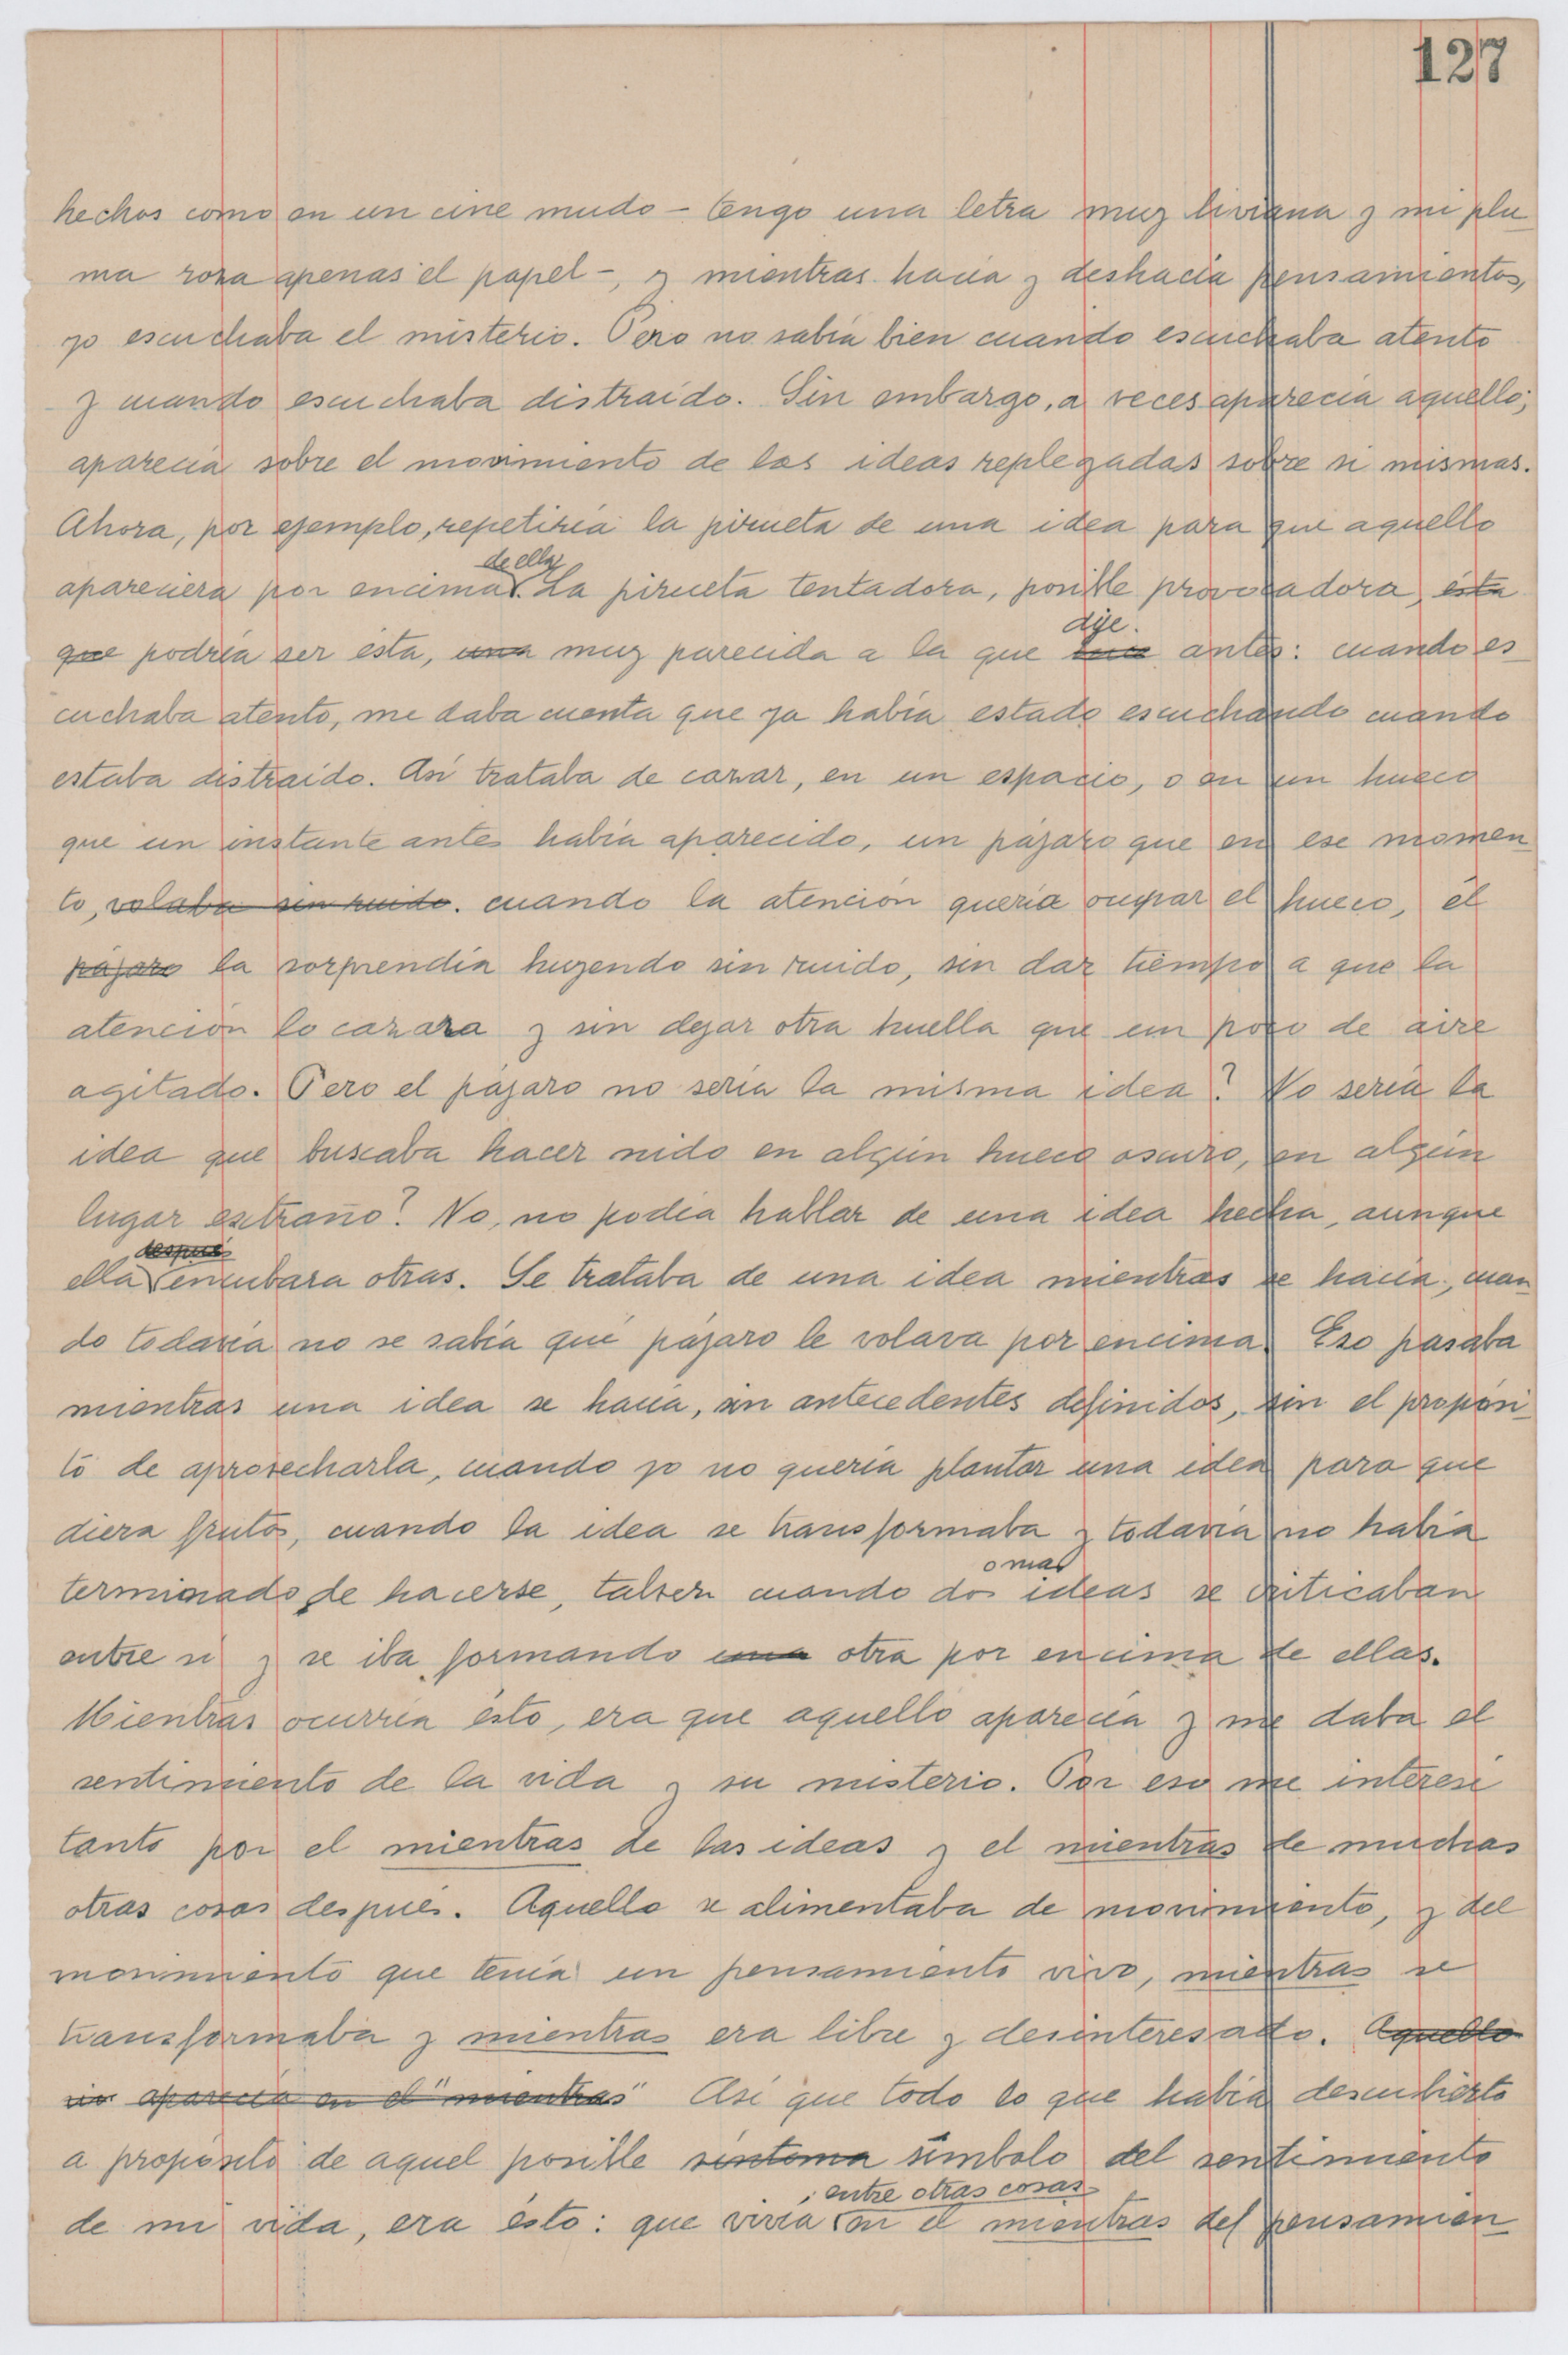 127
hechos como en un cine mudo - tengo una letra muy liviana y mi plu
ma roza apenas el papel -, y mientras hacía y deshacía pensamientos,
yo escuchaba el misterio. Pero no sabía bien cuando escuchaba atento
y cuando escuchaba distraído. Sin embargo, a veces aparecía aquello;
aparecía sobre el movimiento de las ideas replegadas sobre si mismas.
Ahora, por ejemplo, repetiría la pirueta de una idea para que aquello
de ella
apareciera por encima. La pirueta tentadora, posible provocadora, ésta
dije.
que podría ser ésta, una muy parecida a la que antes: cuando es
cuchaba atento, me daba cuenta que ya había estado escuchando cuando
estaba distraído. Asi trataba de cazar, en un espacio, o en un hueco
que un instante antes había aparecido, un pájaro que en ese momen
to, volaba sin ruido. cuando la atención quería ocupar el hueco, él
pájaro la sorprendía huyendo sin ruido, sin dar tiempo a que la
atención lo cazara y sin dejar otra huella que un poco de aire
agitado. Pero el pájaro no sería la misma idea? No sería la
idea que buscaba hacer nido en algún hueco oscuro, en algún
lugar extraño? No, no podía hablar de una idea hecha, aunque
despues
ella encubara otras. Se trataba de una idea mientras se hacía, cuan
do todavía no se sabía qué pájaro le volava por encima. Eso pasaba
mientras una idea se hacía, sin antecedentes definidos, sin el propósi
to de aprovecharla, cuando yo no quería plantar una idea para que
diera frutos, cuando la idea se transformaba y todavía no había
o mas
terminado de hacerse, talvez cuando dos ideas se criticaban
entre si y se iba formando una otra por encima de ellas.
Mientras ocurría ésto, era que aquello aparecía y me daba el
sentimiento de la vida y su misterio. Por eso me interesé
tanto por el mientras de las ideas y el mientras de muchas
otras cosas después. Aquello se alimentaba de movimiento, y del
movimiento que tenía un pensamiento vivo, mientras se
transformaba y mientras era libre y desinteresado. Aquello
no aparecía en el "mientras" Asi que todo lo que había descubierto
a propósito de aquel posible síntoma símbolo del sentimiento
, entre otras cosas
de mi vida, era ésto: que vivía en el mientras del pensamien